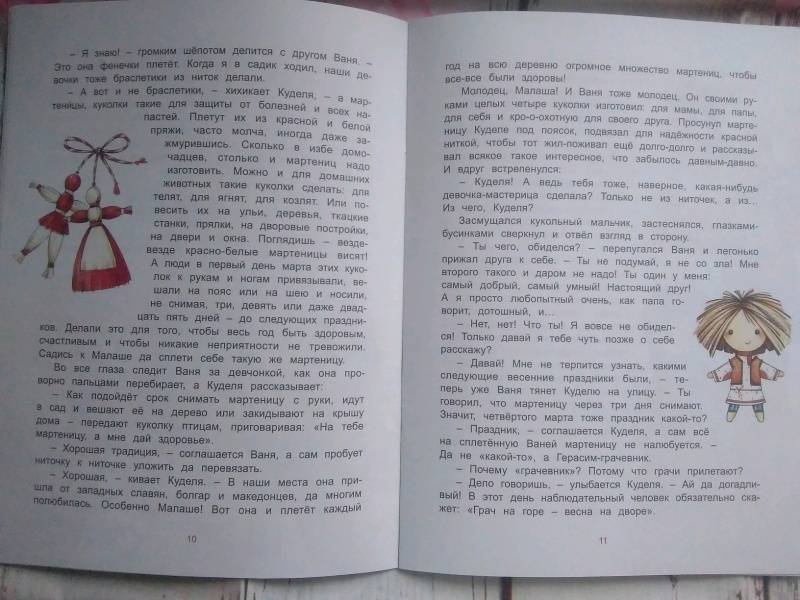 – Я знаю! – громким шёпотом делится с другом Ваня. –
Это она фенечки плетёт. Когда я в садик ходил, наши де-
вочки тоже браслетики из ниток делали.
– А вот и не браслетики, – хихикает Куделя, – а мар-
теницы, куколки такие для защиты от болезней и всех на-
пастей. Плетут их из красной и белой
пряжи, часто молча, иногда даже за-
жмурившись. Сколько в избе домо-
чадцев, столько и мартениц надо
изготовить. Можно и для домашних
животных такие куколки сделать: для
телят, для ягнят, для козлят. Или по-
весить их на ульи, деревья, ткацкие
станки, прялки, на дворовые постройки,
на двери и окна. Поглядишь – везде-
везде красно-белые мартеницы висят!
А люди в первый день марта этих куко-
лок к рукам и ногам привязывали, ве-
шали на пояс или на шею и носили,
не снимая, три, девять или даже двад-
цать пять дней – до следующих праздни-
ков. Делали это для того, чтобы весь год быть здоровым,
счастливым и чтобы никакие неприятности не тревожили.
Садись к Малаше да сплети себе такую же мартеницу.
Во все глаза следит Ваня за девчонкой, как она про-
ворно пальцами перебирает, а Куделя рассказывает:
– Как подойдёт срок снимать мартеницу с руки, идут
в сад и вешают её на дерево или закидывают на крышу
дома – передают куколку птицам, приговаривая: «На тебе
мартеницу, а мне дай здоровье».
– Хорошая традиция, – соглашается Ваня, а сам пробует
ниточку к ниточке уложить да перевязать.
– Хорошая, – кивает Куделя. – В наши места она при-
шла от западных славян, болгар и македонцев, да многим
полюбилась. Особенно Малаше! Вот она и плетёт каждый
10
год на всю деревню огромное множество мартениц, чтобы
все-все были здоровы!
Молодец, Малаша! И Ваня тоже молодец. Он своими ру-
ками целых четыре куколки изготовил: для мамы, для папы,
для себя и кро-о-охотную для своего друга. Просунул марте-
ницу Куделе под поясок, подвязал для надёжности красной
ниткой, чтобы тот жил-поживал ещё долго-долго и рассказы-
вал всякое такое интересное, что забылось давным-давно.
И вдруг встрепенулся:
– Куделя! А ведь тебя тоже, наверное, какая-нибудь
девочка-мастерица сделала? Только не из ниточек, а из…
Из чего, Куделя?
Засмущался кукольный мальчик, застеснялся, глазками-
бусинками сверкнул и отвёл взгляд в сторону.
– Ты чего, обиделся? – перепугался Ваня и легонько
прижал друга к себе. – Ты не подумай, я не со зла! Мне
второго такого и даром не надо! Ты один у меня:
самый добрый, самый умный! Настоящий друг!
А я просто любопытный очень, как папа го-
ворит, дотошный, и…
– Нет, нет! Что ты! Я вовсе не обидел-
ся! Только давай я тебе чуть позже о себе
расскажу?
– Давай! Мне не терпится узнать, какими
следующие весенние праздники были, – те-
перь уже Ваня тянет Куделю на улицу. – Ты
говорил, что мартеницу через три дня снимают.
Значит, четвёртого марта тоже праздник какой-то?
– Праздник, – соглашается Куделя, а сам всё
на сплетённую Ваней мартеницу не налюбуется. –
Да не «какой-то», а Герасим-грачевник.
– Почему «грачевник»? Потому что грачи прилетают?
– Дело говоришь, – улыбается Куделя. – Ай да догадли-
вый! В этот день наблюдательный человек обязательно ска-
жет: «Грач на горе – весна на дворе».
11